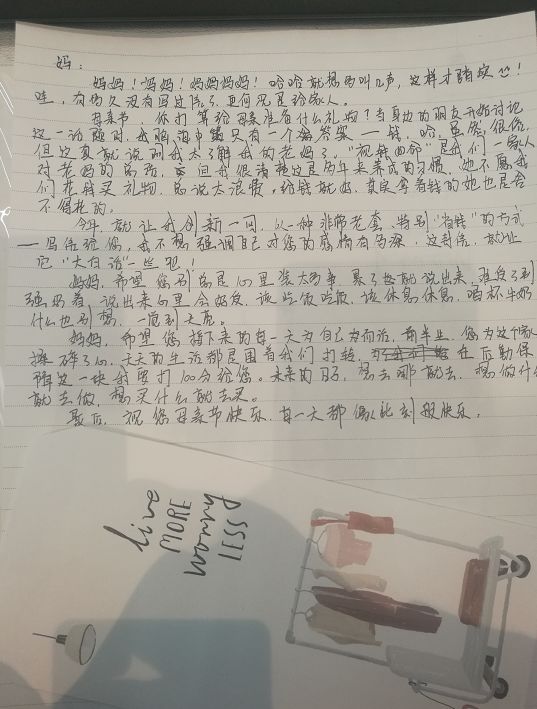 妈：
妈妈！妈妈！妈妈妈妈！哈哈就想多叫几声，这样才踏实！
哇，有多久没有写过信了，更何况是给家人。
母亲节，你打算给母亲准备什么礼物？当身边的朋友开始讨论
这一话题时，我脑海中只有一个答案—钱，哈，虽然很俗，
但这真就说明我太了解我的老妈了，"视钱如命"是我们一家人
对老妈的，但我很清楚这是多年来养成的习惯，她不愿我
们花钱买礼物，总说太浪费，给钱就好，其实拿着钱的她也是舍
不得花的。
今年，就让我创新一回，以一种非常老套，特别"省钱"的方式
—写信给您，我不想强调自己对您的感情有多深，这封信，就让
它"大白话"一些吧！
妈妈，希望您别总是心里装太多事，累了您就说出来，难受了别
强忍着，说出来心里会好受，该吃饭吃饭，该休息休息，喝杯牛奶
什么也别想，一觉到天亮。
妈妈，希望您接下来的每一天为自己为而活，前半生，您为这个家
操碎了心，天天的生活都是围着我们打转，在后勤保
障这一块我要打100分给您。未来的日子，想去哪就去，想做什
就去做，想买什么就去买。
最后，祝您母亲节快乐，每一天都像此刻般快乐。
live
MORE
worry
LESS